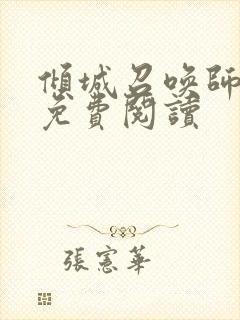 傾城召喚師
免費閱讀
張憲華